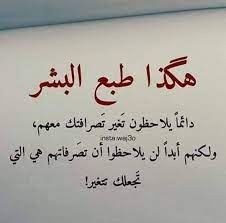 هكذا طبع البشر
دائماً يلاحظون تغير تصرافتك معهم,
insta:waj3o
ولكنهم أبداً لن يلاحظوا أن تصَرفاتهم هي التي
تَجعلك تتغير!